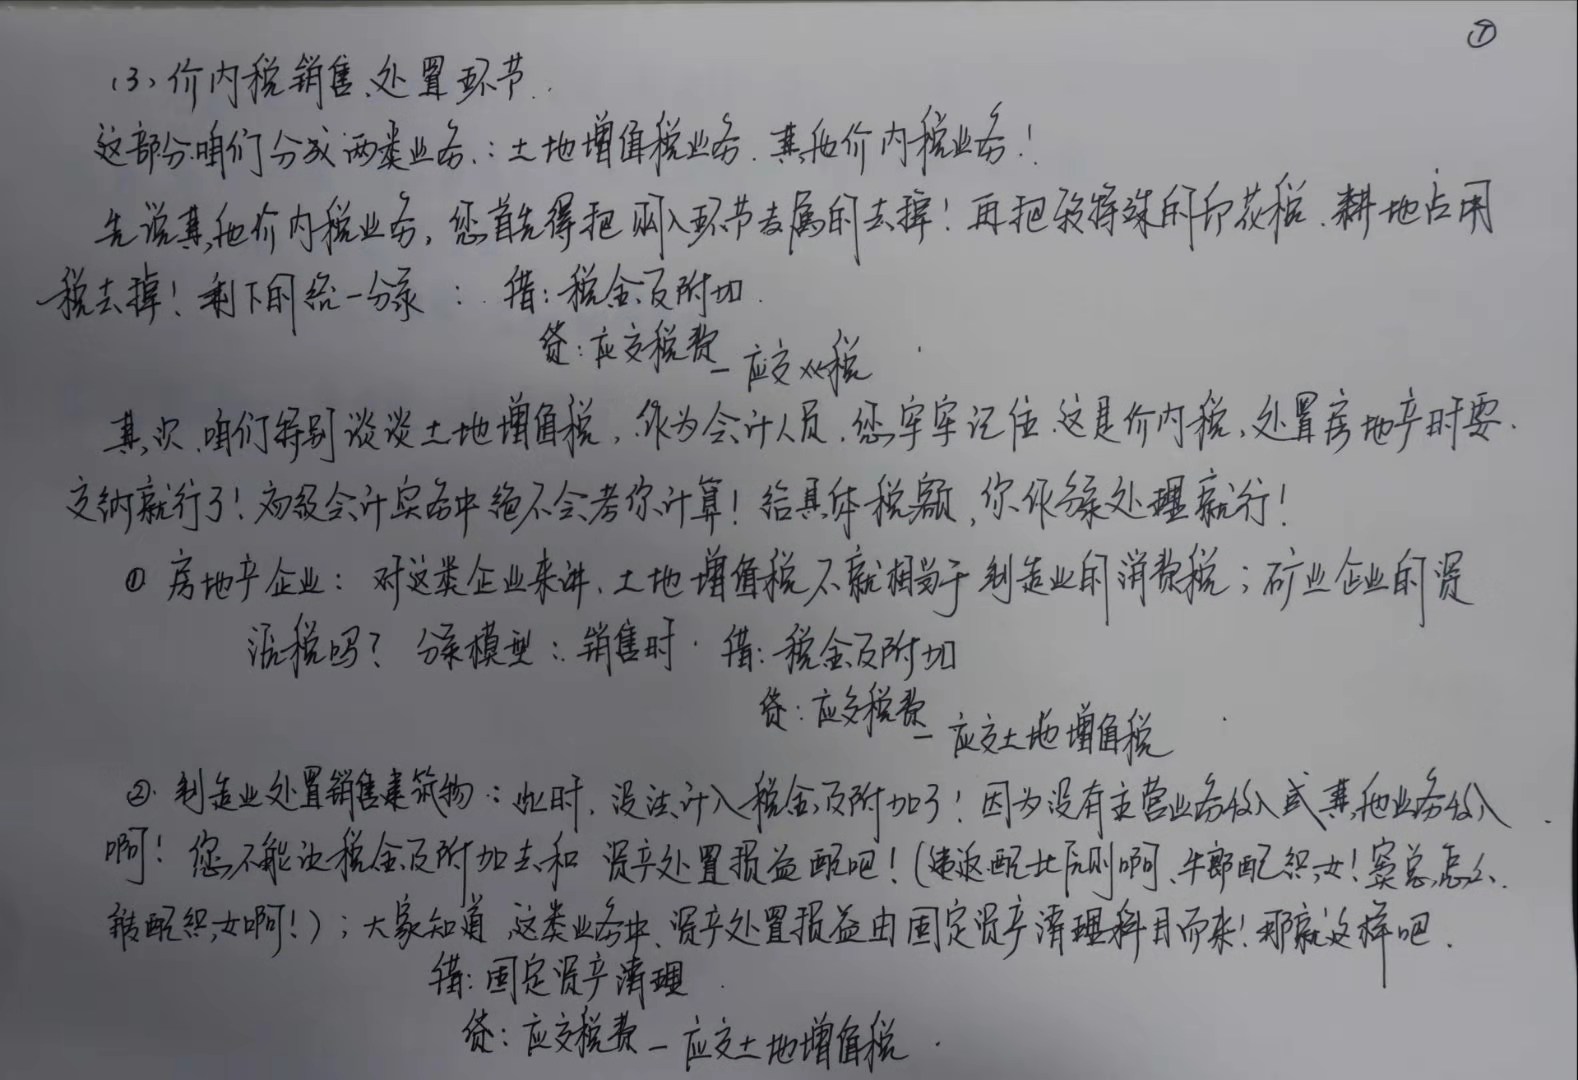 ⑦
(3)、价内税销售、处置环节.
这部分咱们分成两类业务:土地增值税业务、其他价内税业务!
先说其他价内税业务,您首先得把购入环节专属的去掉!再把较特殊的印花税、耕地占用
税去掉!剩下的给一分录:借:税金及附加.
贷:应交税费—应交××税
其次,咱们特别谈谈土地增值税,作为会计人员,您牢牢记住,这是价内税,处置房地产时要
交纳就行了!初级会计实务中绝不会考你计算!给具体税额,你作分录处理就行!
① 房地产企业:对这类企业来讲,土地增值税不就相当于制造业的消费税;矿业企业的资
源税吗?分录模型:销售时.借:税金及附加
贷:应交税费—应交土地增值税
②.制造业处置销售建筑物:此时,没法计入税金及附加了!因为没有主营业务收入或其他业务收入
啊!您不能让税金及附加去和资产处置损益配吧!(违返配比原则啊、牛郎配织女!窦总怎么
能配织女啊!);大家知道,这类业务中、资产处置损益由固定资产清理科目而来!那就这样吧.
借:固定资产清理
贷:应交税费—应交土地增值税.